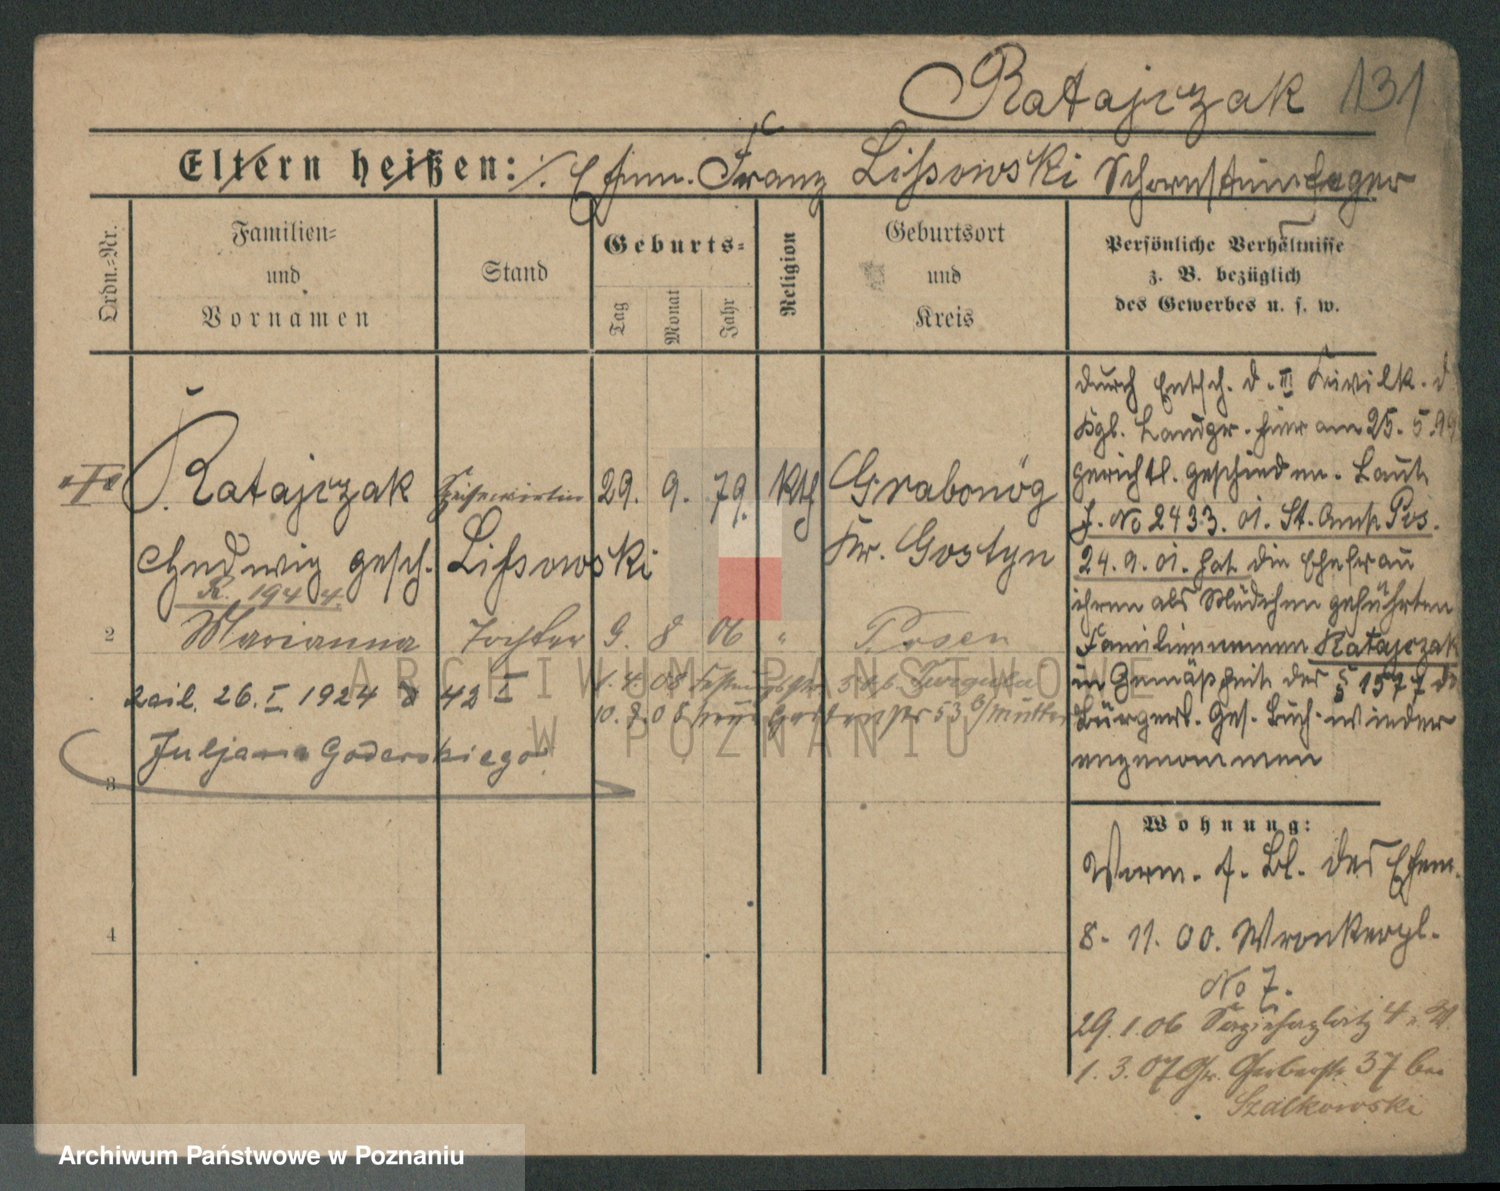 Ratajczak 131
Eltern heißen: Ehem. Franz Lißowski Schornsteinfeger
Ordn.-Nr.
Familien-
und
Vornamen
Stand
Geburts-
Tag
Monat
Jahr
Religion
Geburtsort
und
Kreis
Persönliche Verhältnisse
z. B. bezüglich
des Gewerbes u. s. w.
Ratajczak Speisewirtin 29. 9. 79. Kth Grabonög
Hedwig gesch. Lißowski Kr. Gostyn
R. 1944.
2 Marianna Tochter 9. 8 06 " Posen
26. I 1924 42 I
1. 4. 08
10. 8. 08 Gartenstr 53 b/Mutter
Juljana Goderskiego
3
4
durch Entsch. d. III Civilk. d.
Kgl. Landger. hier am 25. 5. 99
gerichtl. geschieden. Laut
J. No 2433. 01. St. Amt Pos.
24. 9. 01. hat die Ehefrau
ihren als Mädchen geführten
Familiennamen Ratajczak
in Gemäßheit des § 1577 de
Bürgerl. Ges. Buch. wieder
angenommen
Wohnung:
Vorm. s. Bl. des Ehem.
8. 11. 00. Wronkerpl.
No 7.
29. 1. 06 Sapiehaplatz 4
1. 3. 07 Gr. Gerberstr 37 bei
Szalkowski
ARCHIWUM PAŃSTWOWE
W POZNANIU
Archiwum Państwowe w Poznaniu